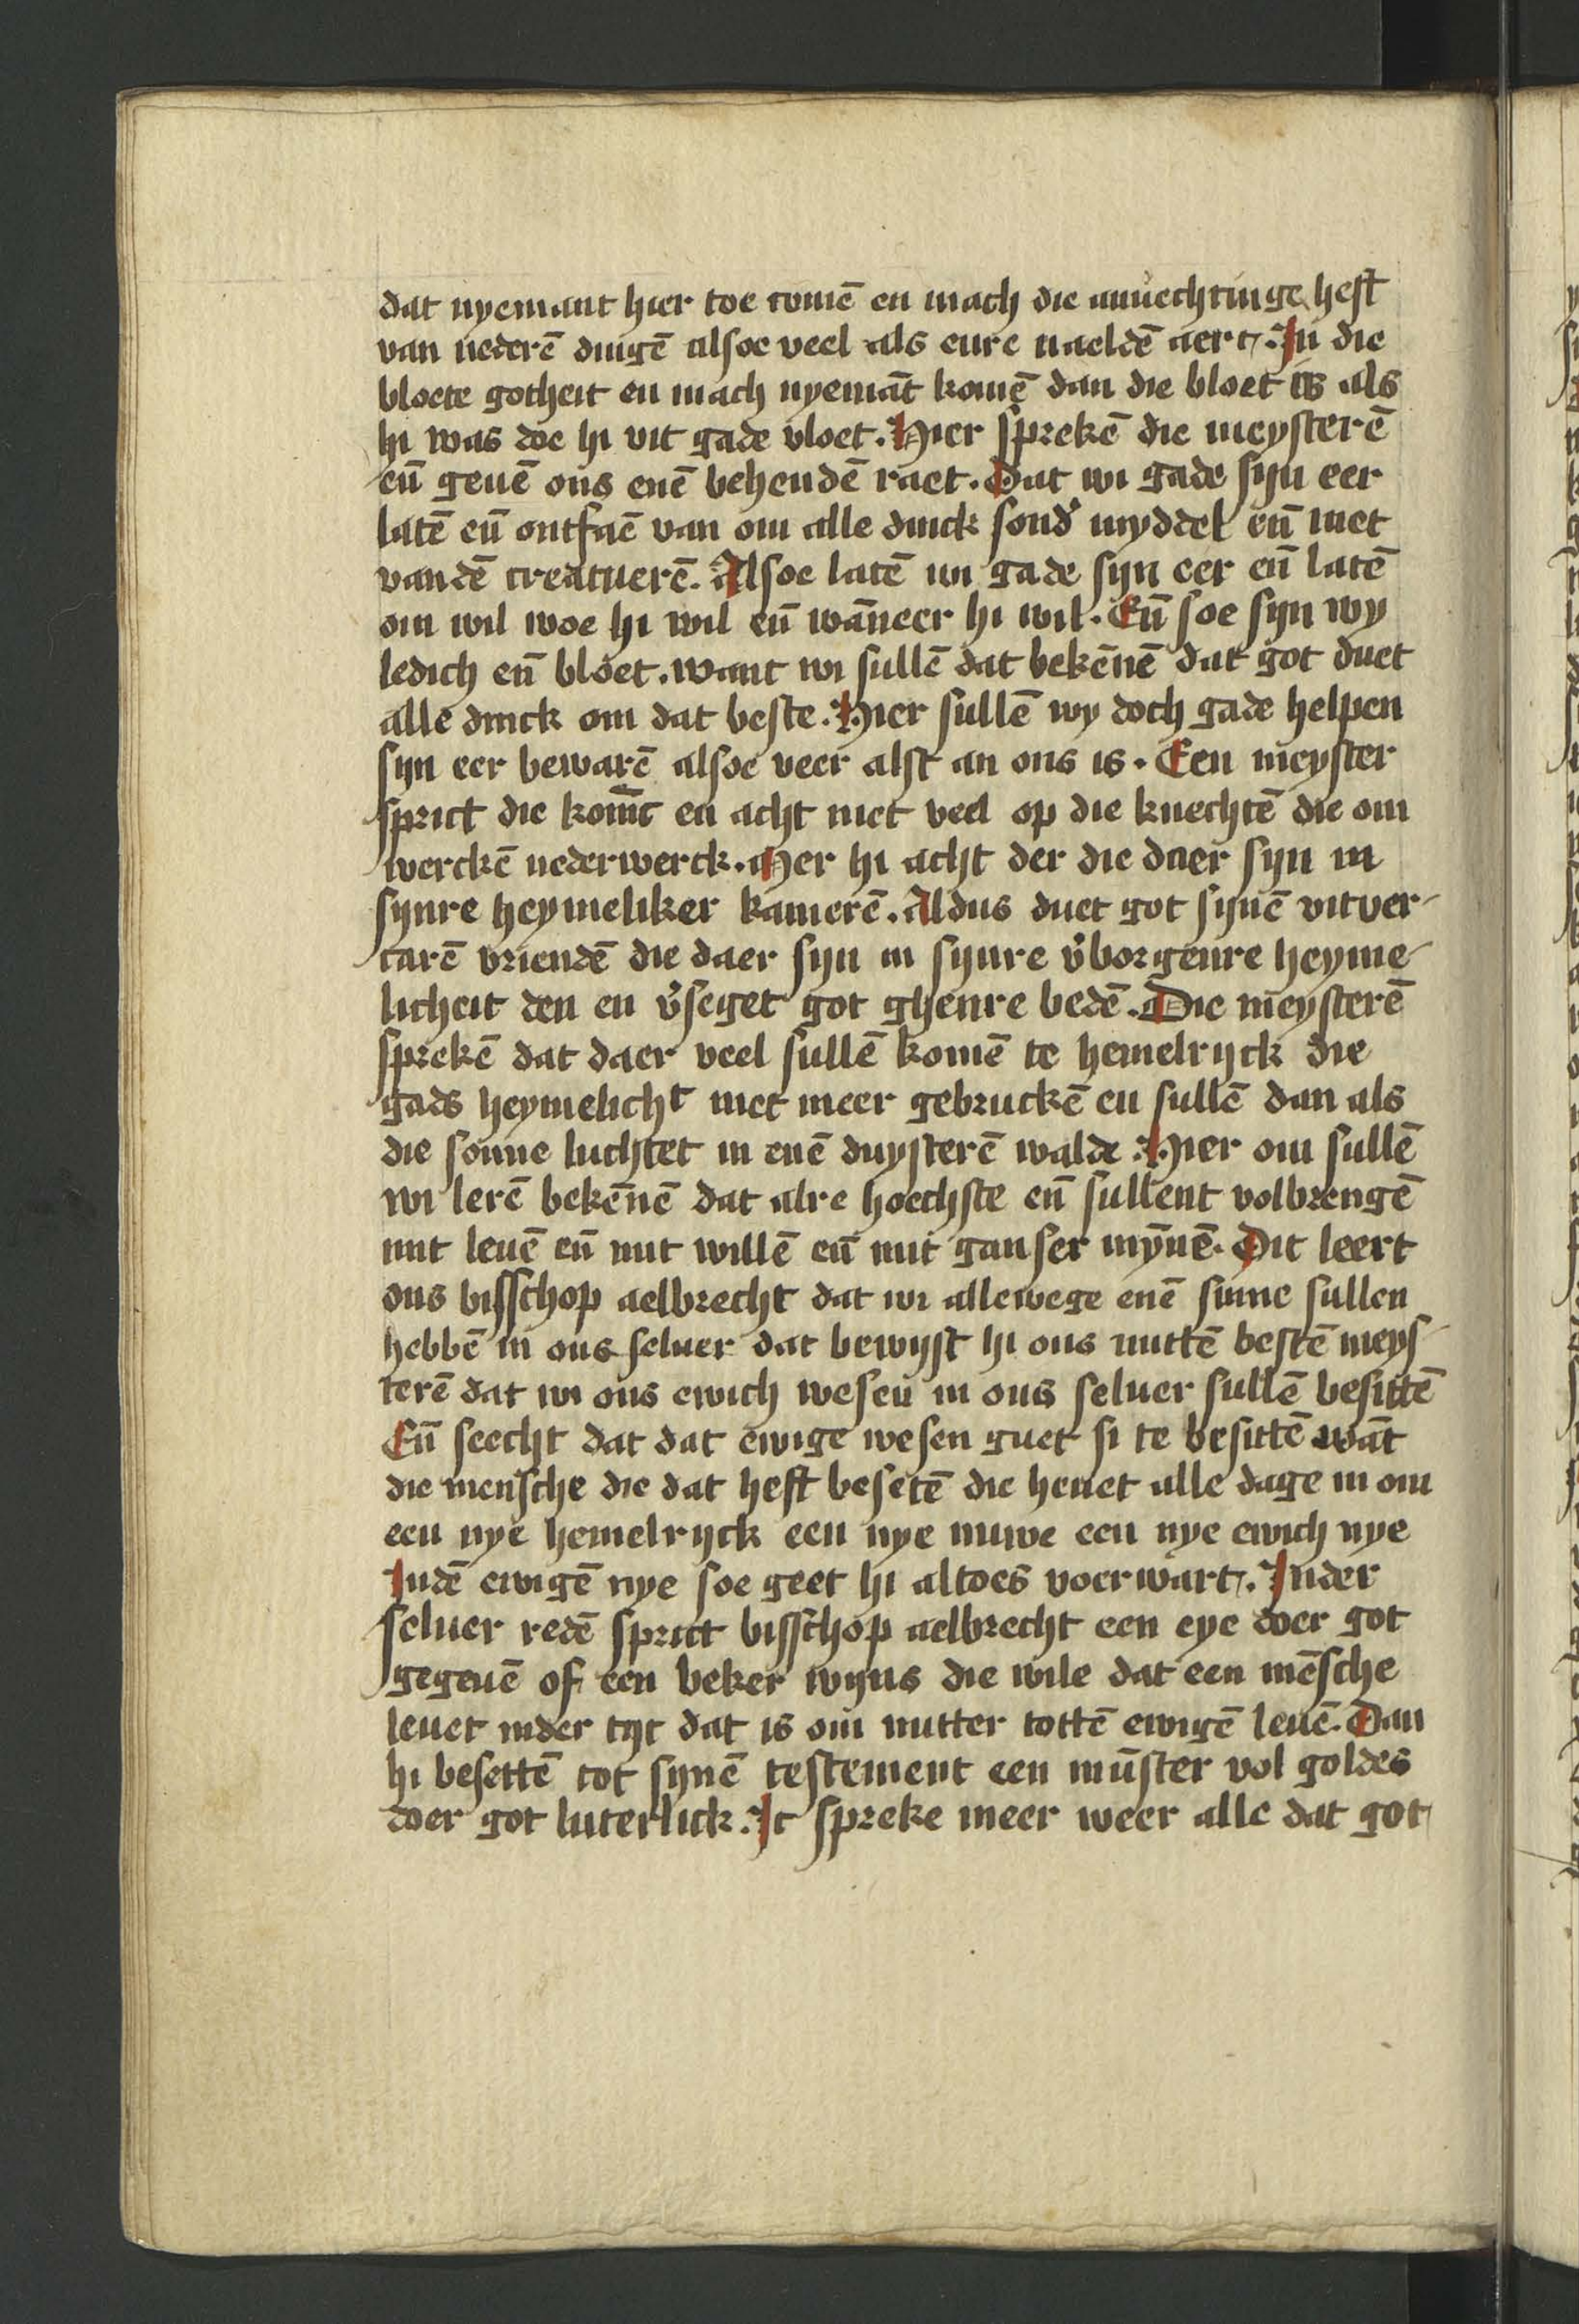 dat nyemant hier toe comē en mach die anuechtinge heft
van nederē dingē alsoe veel als eure naeldē aert. In die
bloete gotheit en mach nyemāt komē dan die bloet is als
hi was doe hi vit gade vloet. Hier sprekē die meysterē
eñ geuē ons enē behendē raet. Dat wi gade syn eer
latē eñ ontfaē van om alle dinck sond' myddel eñ niet
vandē creatuerē. Alsoe latē wi gade syn eer eñ latē
om wil woe hi wil eñ wāneer hi wil. Eñ soe syn wy
ledich eñ bloet. want wi sullē dat bekēnē dat got duet
alle dinck om dat beste. Hier sullē wy doch gade helpen
syn eer bewarē alsoe veer alst an ons is. Een meyster
sprict die konīc en acht niet veel op die knechtē die om
werckē nederwerck. Mer hi acht der die daer syn in
synre heymeliker kamerē. Aldus duet got synē vitver-
carē vriendē die daer syn in synre v'borgenre heyme-
licheit den en v'seget got ghenre bedē. Die meysterē
sprekē dat daer veel sullē komē te hemelryck die
gads heymelicht niet meer gebruckē en sullē dan als
die sonne luchtet in enē duysterē walde. Hier om sullē
wi lerē bekēnē dat alre hoechste eñ sullent volbrengē
mit leuē eñ mit willē eñ mit ganser mȳnē. Dit leert
ons bisschop aelbrecht dat wi allewege enē sinne sullen
hebbē in ons seluer dat bewyst hi ons mittē bestē meys-
terē dat wi ons ewich wesen in ons seluer sullē besittē
Eñ seecht dat dat ewige wesen guet si te besittē wāt
die mensche die dat heft besetē die heuet alle dage in om
een nye hemelryck een nye nuwe een nye ewich nye
Indē ewigē nye soe geet hi altoes voerwart. Inder
seluer redē sprict bisschop aelbrecht een eye doer got
gegeuē of een beker wyns die wile dat een mēsche
leuet inder tyt dat is om nutter tottē ewigē leuē. Dan
hi besettē tot synē testement een mūster vol goldes
doer got luterlick. Ic spreke meer weer alle dat got